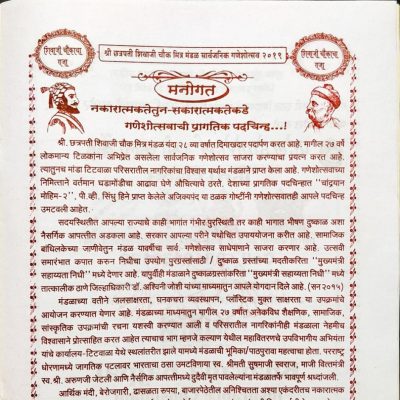 शिवाजी चौकाचा राजा
श्री छत्रपती शिवाजी चौक मित्र मंडळ सार्वजनिक गणेशोत्सव २०१९
शिवाजी चौकाचा राजा
मनोगत
नकारात्मकतेतुन-सकारात्मकतेकडे
गणेशोत्सवाची प्रागतिक पदचिन्ह...!
श्री. छत्रपती शिवाजी चौक मित्र मंडळ यंदा २८ व्या वर्षात दिमाखदार पदार्पण करत आहे. मागील २७ वर्षे
लोकमान्य टिळकांना अभिप्रेत असलेला सार्वजनिक गणेशोत्सव साजरा करण्याचा प्रयत्न करत आहे.
त्यातुनच मांडा टिटवाळा परिसरातील नागरिकांचा विश्वास मर्थाथ मंडळाने प्राप्त केला आहे. गणेशोत्सवाच्या
निमित्ताने वर्तमान घडामोडींचा आढावा घेणे औचित्याचे ठरते. देशाच्या प्रागतिक पदचिन्हात "चांद्रयान
मोहिम-२", पी.व्ही. सिंधु हिने प्राप्त केलेले अजिंक्यपद या ठळक गोष्टींनी गणेशोत्सवातही आपले पदचिन्ह
उमटवली आहेत.
सदयस्थितीत आपल्या राज्याचे काही भागांत गंभीर पुरस्थिती तर काही भागात भीषण दुष्काळ अशा
नैसर्गिक आपत्तीत अडकला आहे. सरकार आपल्या परीने यथोचित उपाययोजना करीत आहे. सामाजिक
बांधिलकेच्या जाणीवेतुन मंडळ यावर्षीचा सार्व. गणेशोत्सव साधेपणाने साजरा करणार आहे. उत्सवी
समारंभात कपात करुन निधीचा उपयोग पुरग्रस्तांसाठी / दुष्काळ ग्रस्तांच्या मदतीकरिता "मुख्यमंत्री
सहाय्यता निधी" मध्ये देणार आहे. यापुर्वीही मंडळाने दुष्काळग्रस्तांकरिता "मुख्यमंत्री सहाय्यता निधी" मध्ये
तात्कालीक ठाणे जिल्हाधिकारी डॉ. अश्विनी जोशी यांच्या माध्यमातुन आपले योगदान दिले आहे. (सन २०१५)
मंडळाच्या वतीने जलसाक्षरता, घनकचरा व्यवस्थापन, प्लॉस्टिक मुक्त साक्षरता या उपक्रमांचे
आयोजन करण्यात येणार आहे. मंडळाच्या माध्यमातुन मागील २७ वर्षात अनेकविध शैक्षणिक, सामाजिक,
सांस्कृतिक उपक्रमांची रचना यशस्वी करण्यात आली व परिसरातील नागरिकांनीही मंडळाला नेहमीच
विश्वासाने प्रोत्साहित करत आहेत त्याचाच भाग म्हणजे कल्याण येथील महावितरणचे उपविभागीय अभियंता
यांचे कार्यालय-टिटवाळा येथे स्थलांतरीत झाले यामध्ये मंडळाची भूमिका/पाठपुरावा महत्वाचा होता. परराष्ट्र
धोरणामध्ये जागतिक पटलावर भारताचा ठसा उमटविणाऱ्या स्व. श्रीमती सुषमाजी स्वराज, माजी वित्तमंत्री
स्व.श्री. अरुणजी जेटली आणि नैर्सगिक आपत्तीमध्ये दुर्दैवी मृत पावलेल्यांना मंडळातर्फे भावपूर्ण श्रध्दांजली.
आर्थिक मंदी, बेरोजगारी, ढासळता रुपया, बाजारपेठेतील अनिश्चितता अश्या एकंदरीतच नकारात्मक